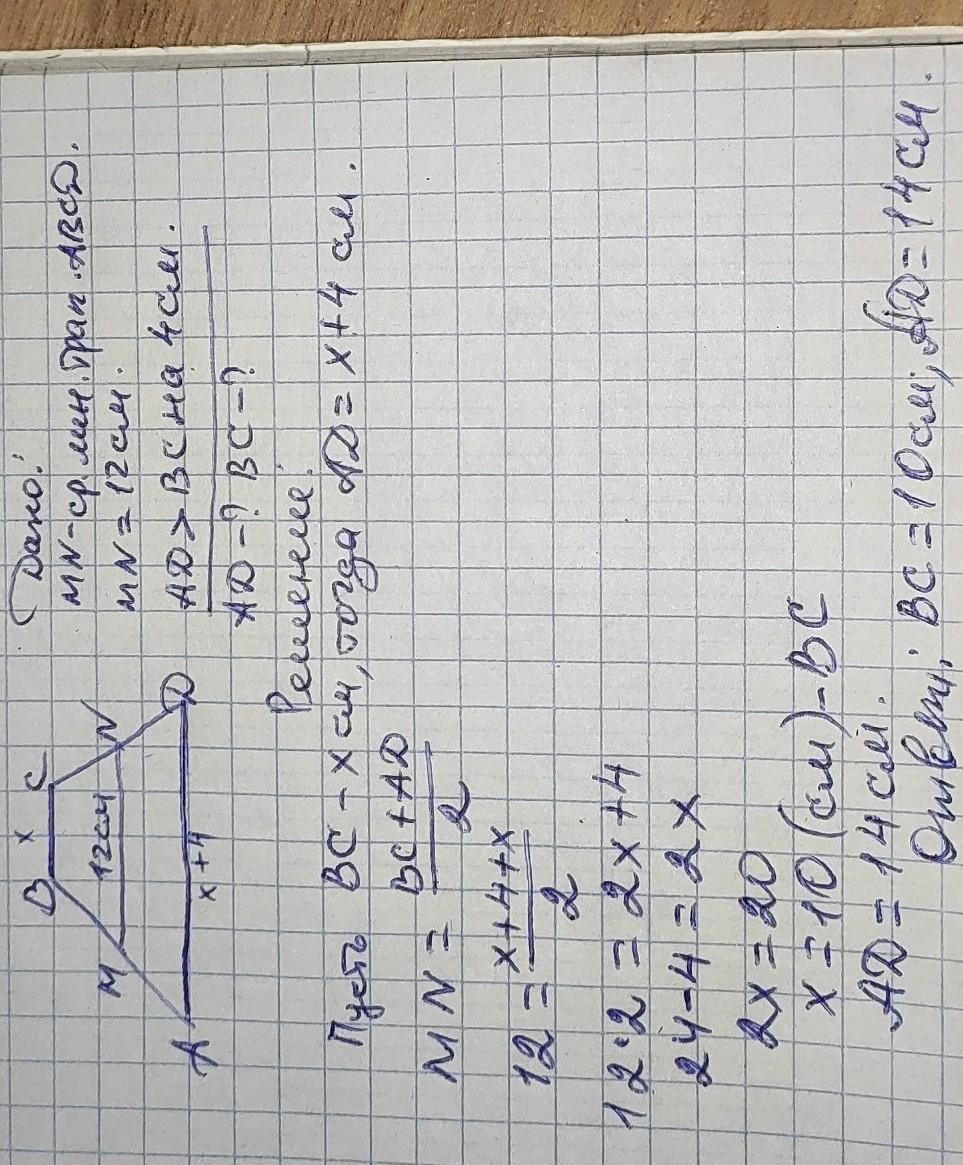 B x C
M 12см N
A x+4 D
Дано:
MN-ср.лин.трап.ABCD.
MN=12см.
AD>BC на 4см.
AD-? BC-?
Решение:
Пусть BC-x см, тогда AD=x+4 см.
MN = BC+AD/2
12 = x+4+x/2
12·2=2x+4
24-4=2x
2x=20
x=10(см)-BC
AD=14см.
Ответ: BC=10см; AD=14см.